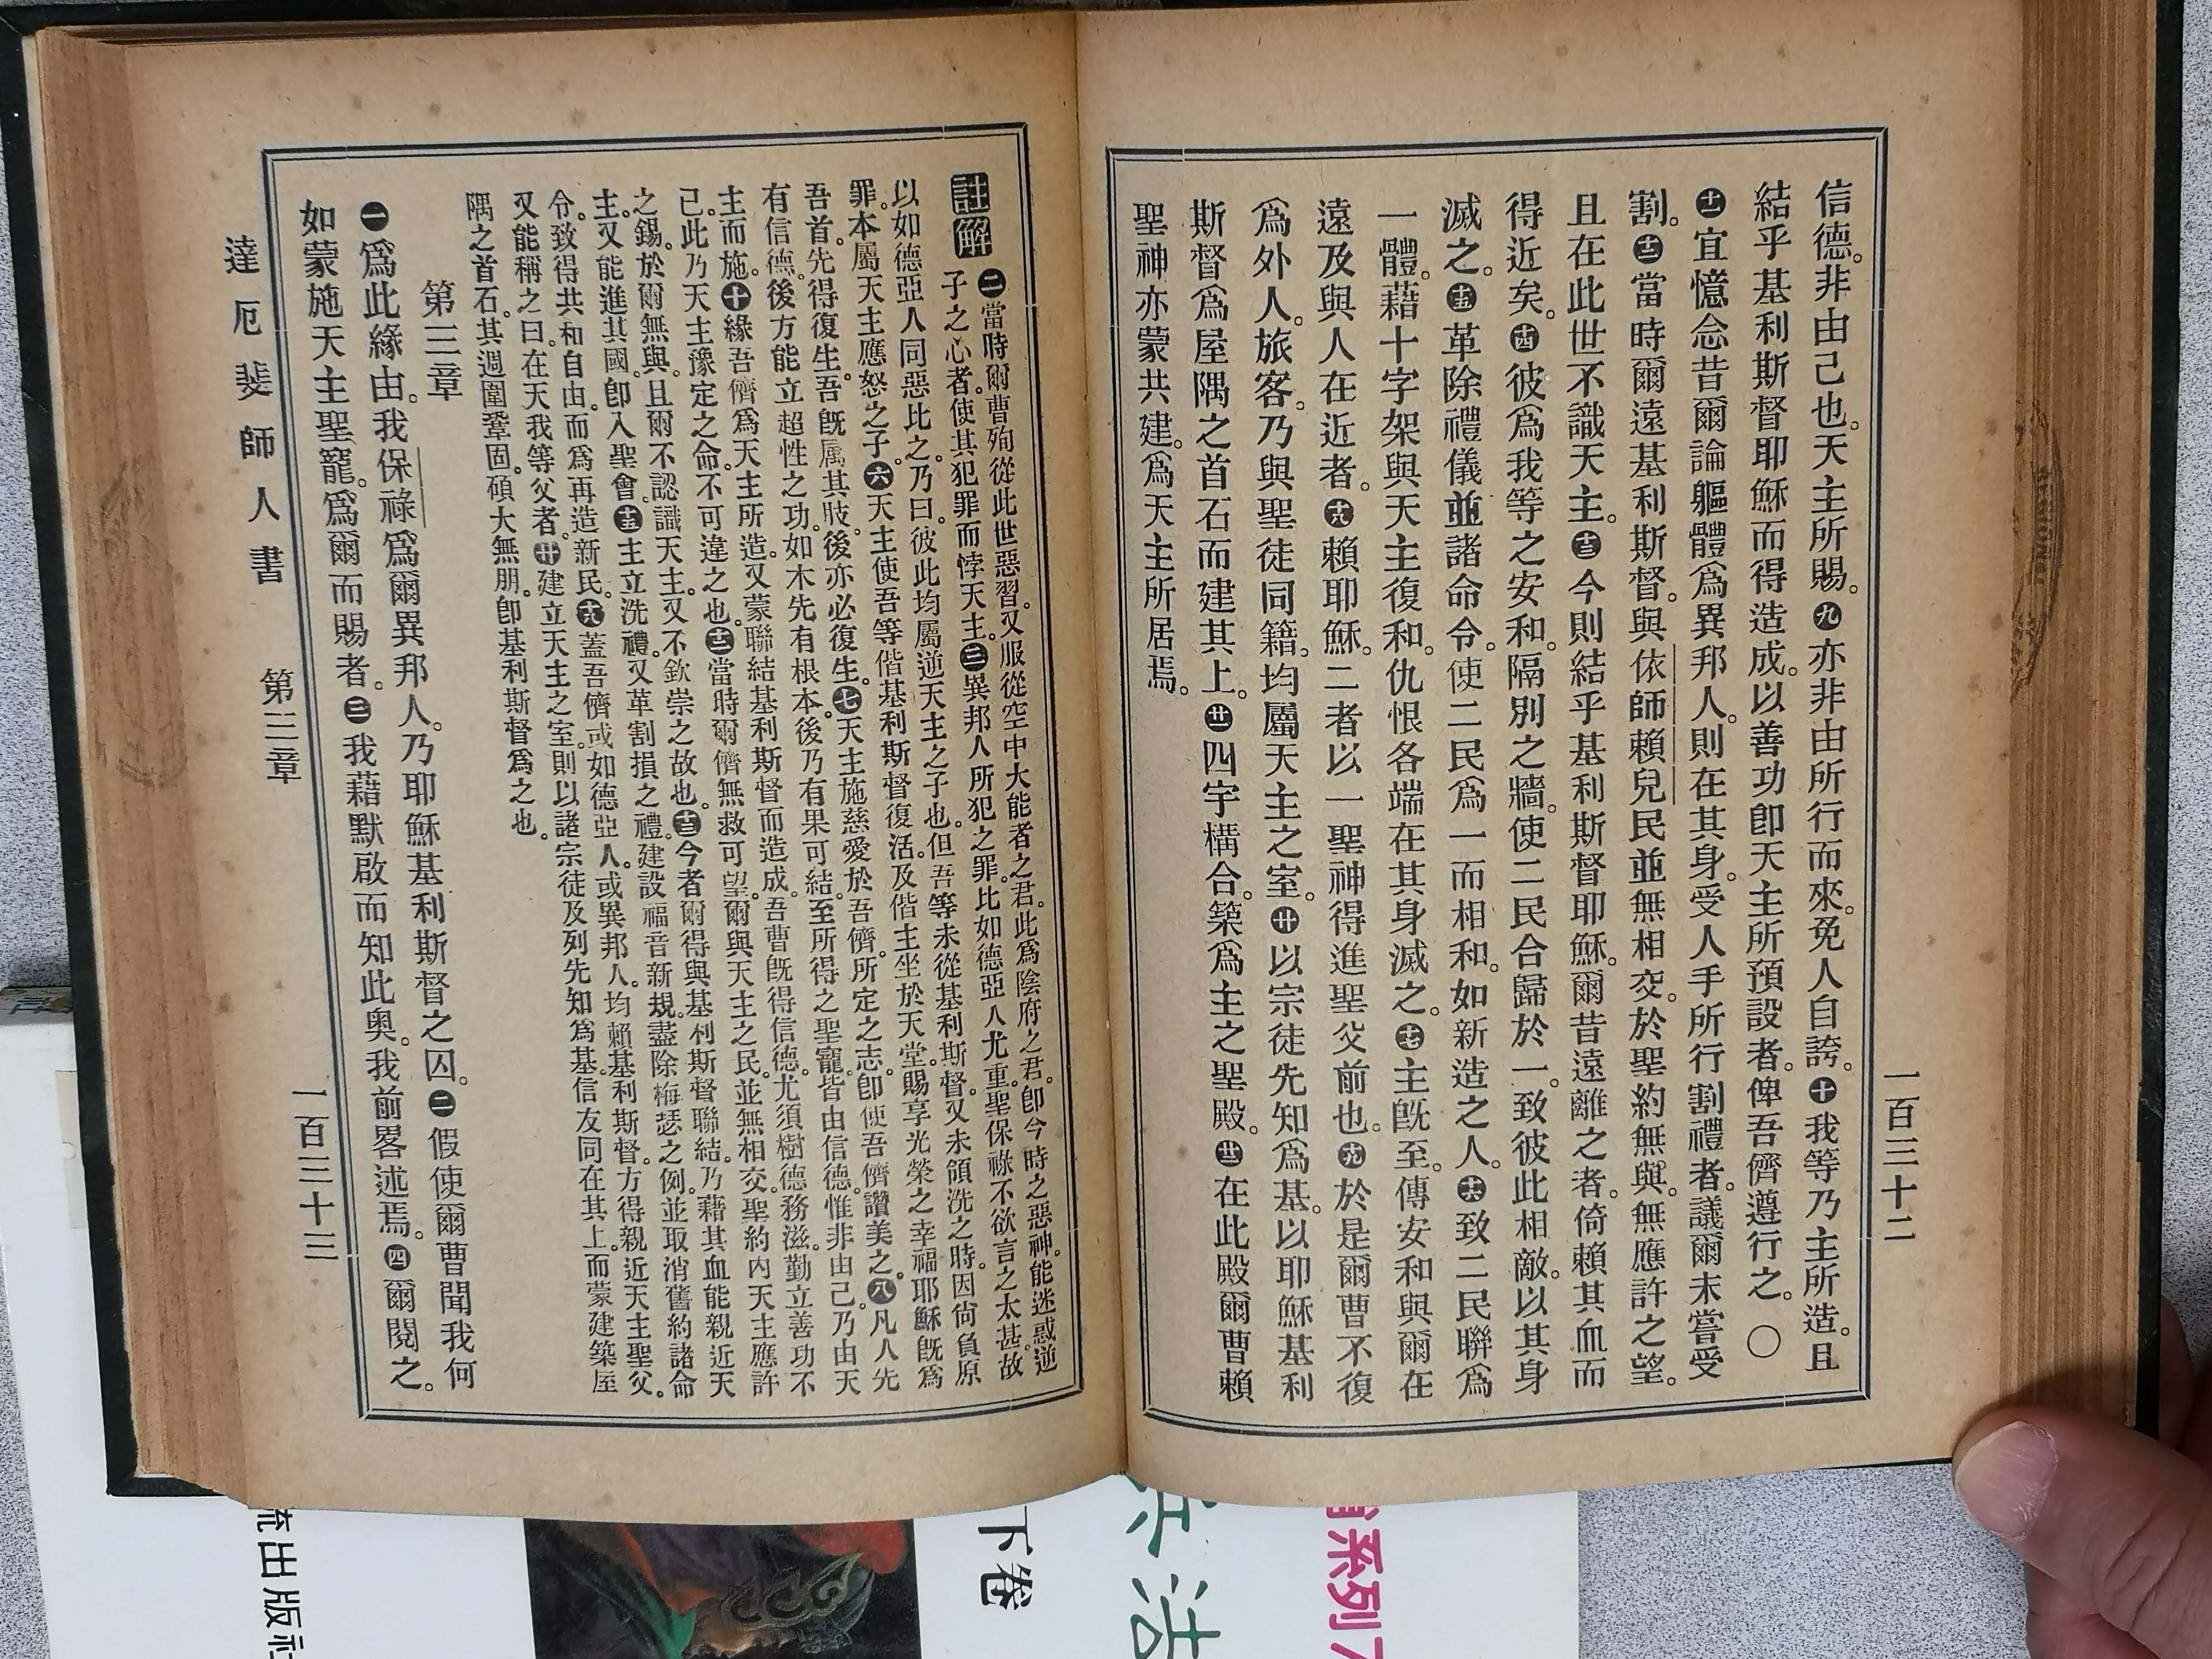 一百三十二
信德。非由己也。天主所賜。九亦非由所行而來。免人自誇。十我等乃主所造。且
結乎基利斯督耶穌而得造成。以善功卽天主所預設者。俾吾儕遵行之。〇
十一宜憶念昔爾論軀體爲異邦人。則在其身。受人手所行割禮者。議爾未嘗受
割。十二當時爾遠基利斯督。與依師賴兒民並無相交。於聖約無與。無應許之望。
且在此世不識天主。十三今則結乎基利斯督耶穌。爾昔遠離之者。倚賴其血而
得近矣。十四彼爲我等之安和。隔別之牆。使二民合歸於一。致彼此相敵。以其身
滅之。十五革除禮儀並諸命令。使二民爲一而相和。如新造之人。十六致二民聯爲
一體。藉十字架與天主復和。仇恨各端在其身滅之。十七主旣至。傳安和與爾在
遠及與人在近者。十八賴耶穌。二者以一聖神得進聖父前也。十九於是爾曹不復
爲外人。旅客。乃與聖徒同籍。均屬天主之室。廿以宗徒先知爲基。以耶穌基利
斯督爲屋隅之首石而建其上。廿一四宇構合。築爲主之聖殿。廿二在此殿爾曹賴
聖神亦蒙共建。爲天主所居焉。
註解 二當時爾曹殉從此世惡習。又服從空中大能者之君。此爲陰府之君。卽今時之惡神。能迷惑逆
子之心者。使其犯罪而悖天主。三異邦人所犯之罪。比如德亞人尤重。聖保祿不欲言之太甚。故
以如德亞人同惡比之。乃曰。彼此均屬逆天主之子也。但吾等未從基利斯督。又未領洗之時。因尙負原
罪。本屬天主應怒之子。六天主使吾等偕基利斯督復活。及偕主坐於天堂。賜享光榮之幸福。耶穌旣爲
吾首。先得復生。吾旣属其肢。後亦必復生。七天主施慈愛於吾儕。所定之志。卽使吾儕讚美之。八凡人先
有信德。後方能立超性之功。如木先有根本。後乃有果可結。至所得之聖寵。皆由信德。惟非由己。乃由天
主而施。十緣吾儕爲天主所造。又蒙聯結基利斯督而造成。吾曹旣得信德。尤須樹德務滋。勤立善功。不
己。此乃天主豫定之命。不可違之也。十二當時爾儕無救可望。爾與天主之民。並無相交。聖約內天主應許
之錫。於爾無與。且爾不認識天主。又不欽崇之故也。十三今者爾得與基利斯督聯結。乃藉其血能親近天
主。又能進其國。卽入聖會。十五主立洗禮。又革割損之禮。建設福音新規。盡除梅瑟之例。並取消舊約諸命
令。致得共和自由。而爲再造新民。十八蓋吾儕或如德亞人。或異邦人。均賴基利斯督。方得親近天主聖父。
又能稱之曰。在天我等父者。廿建立天主之室。則以諸宗徒及列先知爲基。信友同在其上。而蒙建築。屋
隅之首石。其週圍鞏固。碩大無朋。卽基利斯督爲之也。
第三章
一爲此緣由。我保祿爲爾異邦人。乃耶穌基利斯督之囚。二假使爾曹聞我何
如蒙施天主聖寵。爲爾而賜者。三我藉默啟而知此奧。我前畧述焉。四爾閱之。
達厄斐師人書 第三章 一百三十三
流出版社
下卷
兵法
系列7